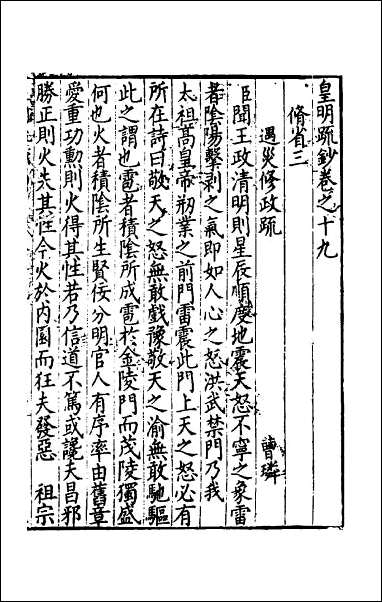 皇明疏鈔卷之十九
脩省三
遇災修政疏 曹璘
臣聞王政清明則星辰順度地震天怒不寧之象雷
者陰陽擊剥之氣即如人心之怒洪武禁門乃我
太祖高皇帝刱業之前門雷震此門上天之怒必有
所在詩曰敬天之怒無敢戲豫敬天之渝無敢馳驅
此之謂也雹者積陰所成雹於金陵門而茂陵獨盛
何也火者積陰所生賢佞分明官人有序率由舊章
愛重功勲則火得其性若乃信道不篤或讒夫昌邪
勝正則火失其性今火於内園而狂夫發惡 祖宗